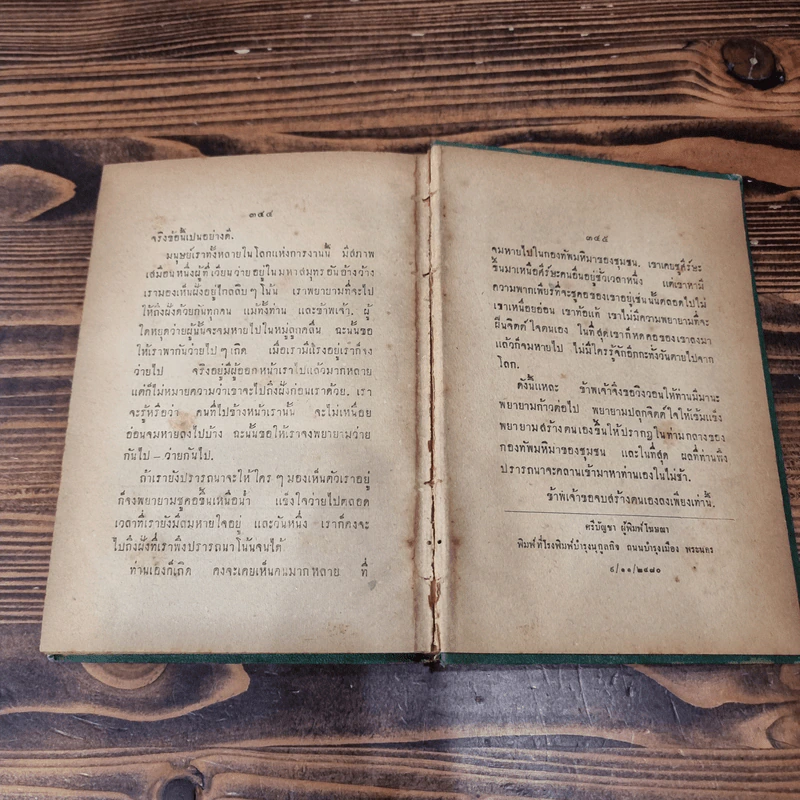 ๓๔๔
จริงข้อนี้เปนอย่างดี.
มนุษย์เราทั้งหลายในโลกแห่งการงานนี้ มีสภาพ
เสมือนหนึ่งผู้ที่เวียนว่ายอยู่ในมหาสมุทรอันอ้างว้าง
เรามองเห็นฝั่งอยู่ไกลลิบๆโน้น เราพยายามที่จะไป
ให้ถึงฝั่งด้วยกันทุกคน แม้ทั้งท่าน และข้าพเจ้า. ผู้
ใดหยุดว่ายผู้นั้นจะจมหายไปในหมู่ลูกคลื่น ฉะนั้นขอ
ให้เราพากันว่ายไปๆเถิด เมื่อเรามีแรงอยู่เราก็จง
ว่ายไป จริงอยู่มีผู้ออกหน้าเราไปแล้วมากหลาย
แต่ก็ไม่หมายความว่าเขาจะไปถึงฝั่งก่อนเราด้วย. เรา
จะรู้หรือว่า คนที่ไปข้างหน้าเรานั้น จะไม่เหนื่อย
อ่อนจมหายลงไปบ้าง ฉะนั้นขอให้เราจงพยายามว่าย
กันไป – ว่ายกันไป.
ถ้าเรายังปรารถนาจะให้ใครๆมองเห็นตัวเราอยู่
ก็จงพยายามชูคอขึ้นเหนือน้ำ แข็งใจว่ายไปตลอด
เวลาที่เรายังมีลมหายใจอยู่ และวันหนึ่ง เราก็คงจะ
ไปถึงฝั่งที่เราพึงปรารถนาโน้นจนได้
ท่านเองก็เถิด คงจะเคยเห็นคนมากหลาย ที่
๓๔๕
จมหายไปในกองทัพมหิมาของชุมชน. เขาเคยชูศีร์ษะ
ขึ้นมาเหนือศีร์ษะคนอื่นอยู่ชั่วเวลาหนึ่ง แต่เขาหามี
ความพากเพียรที่จะชูคอของเขาอยู่เช่นนั้นตลอดไปไม่
เขาเหนื่อยอ่อน เขาท้อแท้ เขาไม่มีความพยายามที่จะ
ฝืนจิตต์ใจตนเอง ในที่สุดเขาก็หดคอของเขาลงมา
แล้วก็จมหายไป ไม่มีใครรู้จักอีกกะทั่งวันตายไปจาก
โลก.
ดังนี้แหละ ข้าพเจ้าจึงขอวิงวอนให้ท่านมีมานะ
พยายามก้าวต่อไป พยายามปลุกจิตต์ใจให้เข้มแข็ง
พยายามสร้างตนเองขึ้นให้ปรากฏในท่ามกลางของ
กองทัพมหิมาของชุมชน และในที่สุด ผลที่ท่านพึง
ปรารถนาจะคลานเข้ามาหาท่านเองในไม่ช้า.
ข้าพเจ้าขอจบสร้างตนเองลงเพียงเท่านี้.
ศรีบัญชา ผู้พิมพ์โฆษณา
พิมพ์ที่โรงพิมพ์บำรุงนุกูลกิจ ถนนบำรุงเมือง พระนคร
๙/๑๑/๒๔๘๐